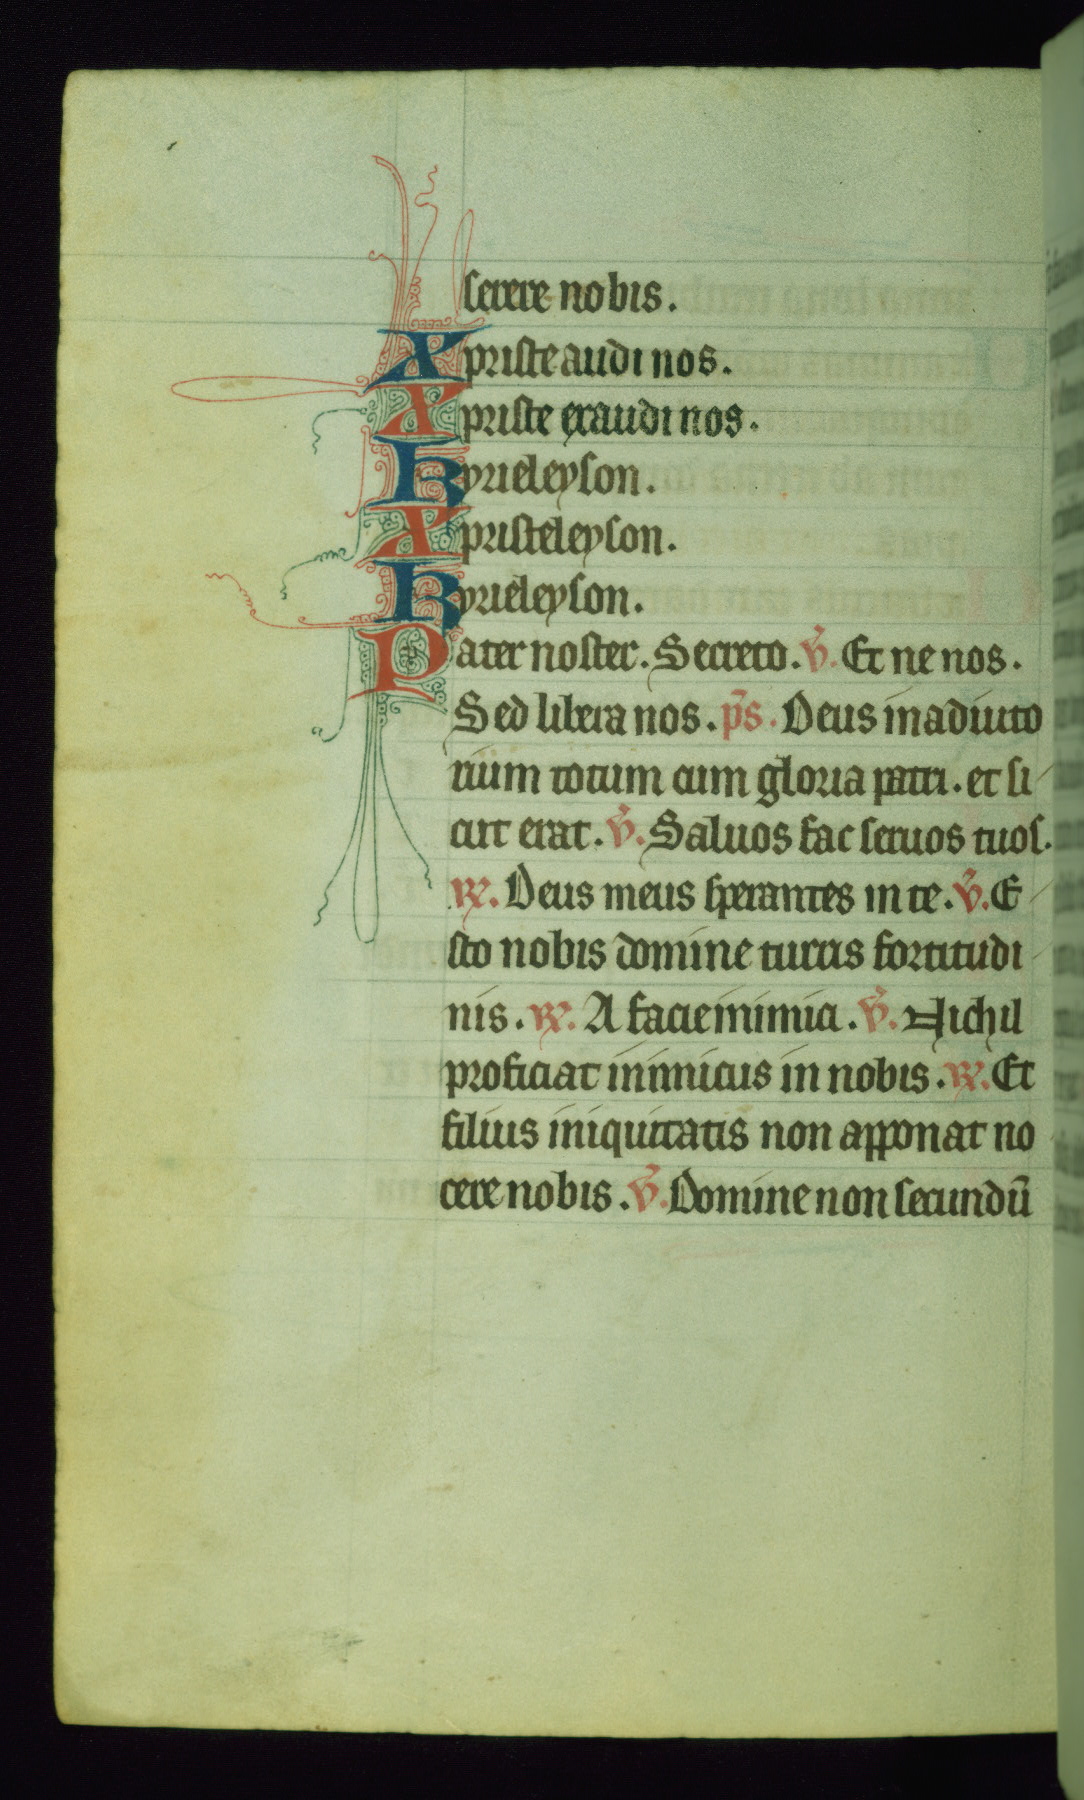 serere nobis.
Xpriste audi nos.
Xpriste exaudi nos.
Kyrieleyson.
Xpristeleyson.
Kyrieleyson.
Pater noster. Secreto. v̄. Et ne nos.
Sed libera nos. p̄s. Deus in adiuto
rium totum cum gloria patri. et si
cut erat. v̄. Saluos fac seruos tuos.
R̷. Deus meus sperantes in te. v̄. E
sto nobis domine turris fortitudi
nis. R̷. A facie inimici. v̄. Nichil
proficiat inimicus in nobis. R̷. Et
filius iniquitatis non apponat no
cere nobis. v̄. Domine non secundū